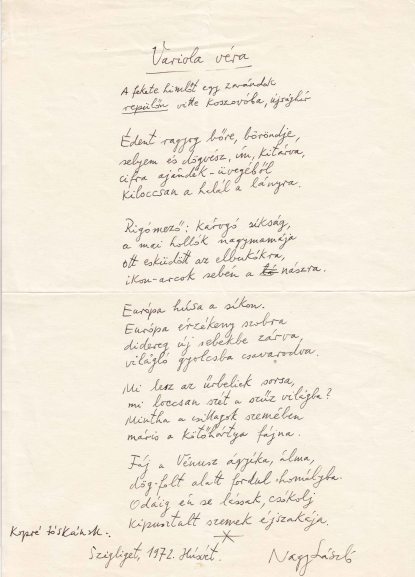 Variola véra
A fekete himlőt egy zarándok
repülőn vitte Koszovóba, újsághír
Édent ragyog bőre, bőröndje,
selyem és dögvész, ím, kitárva,
cifra ajándék-üvegéből
kiloccsan a halál a lányra.
Rigómező: károgó síkság,
a mai hollók nagymamája
ott esküdött az elbukókra,
ikon-arcok sebén a nászra.
Európa húsa a síkon.
Európa érzékeny szobra
didereg új sebekbe zárva,
világló gyolcsba csavarodva.
Mi lesz az űrbeliek sorsa,
mi loccsan szét a szűz világba?
Mintha a csillagok szemében
máris a kötőhártya fájna.
Fáj a Vénusz ágyéka, álma,
dög-folt alatt fordul homályba.
Odáig én se lássak, csókolj
kipusztult szemek éjszakája.
Szigliget, 1972. Húsvét.
Nagy László